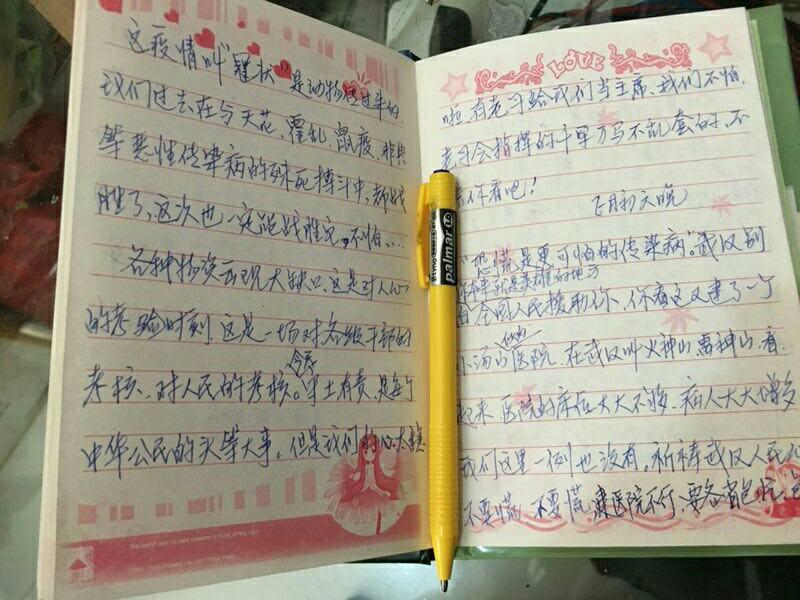 这疫情叫"冠状"是动物传过来的
我们过去在与天花、霍乱、鼠疫、非典
等恶性传染病的殊死搏斗中,都战
胜了,这次也一定能战胜它,不怕...
各种物资出现大缺口,这是对人心
的考验时刻,这是一场对各级干部的
考核,对人民的考核。守土有责,是每个
中华公民的头等大事。但是我们的心太
LOVE
啦,有老习给我们当主席,我们不怕,
老习会指挥的千军万马不乱套的,不
你看吧!
正月初六晚
"恐慌是更可怕的传染病"。武汉别
全国人民援助你,你看这又建了一个
小汤山似的医院,在武汉叫火神山雷神山,看
起来医院的床位大大不够,病人大大增多
我们这里一例也没有,祈祷武汉人民
不要慌,不要慌,建医院不行,要各省包
palmar